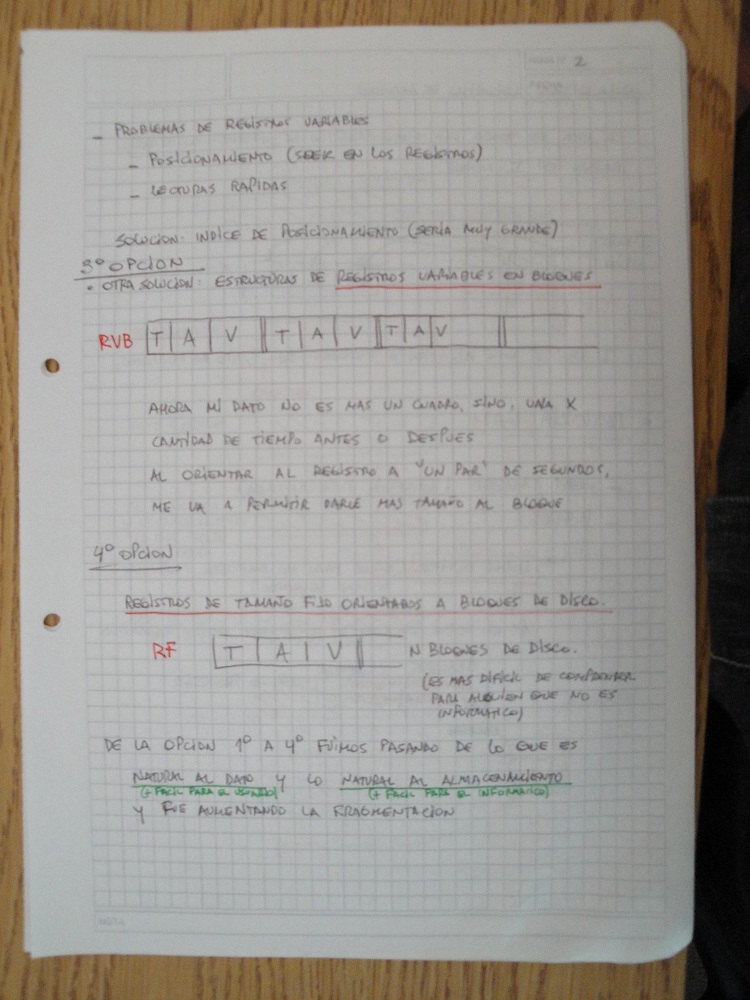 HOJA Nº 2
FECHA
- PROBLEMAS DE REGISTROS VARIABLES
- POSICIONAMIENTO (SEEK EN LOS REGISTROS)
- LECTURAS RAPIDAS
SOLUCION: INDICE DE POSICIONAMIENTO (SERÍA MUY GRANDE)
3º OPCION
• OTRA SOLUCION: ESTRUCTURAS DE REGISTROS VARIABLES EN BLOQUES
RVB T A V T A V T A V
AHORA MI DATO NO ES MAS UN CUADRO, SINO, UNA X
CANTIDAD DE TIEMPO ANTES O DESPUES
AL ORIENTAR AL REGISTRO A "UN PAR" DE SEGUNDOS,
ME VA A PERMITIR DARLE MAS TAMAÑO AL BLOQUE
4º OPCION
REGISTROS DE TAMAÑO FIJO ORIENTADOS A BLOQUES DE DISCO.
RF T A V N BLOQUES DE DISCO.
(ES MAS DIFICIL DE COMPRENDER
PARA ALGUIEN QUE NO ES
INFORMATICO)
DE LA OPCION 1º A 4º FUIMOS PASANDO DE LO QUE ES
NATURAL AL DATO Y LO NATURAL AL ALMACENAMIENTO
(+ FACIL PARA EL USUARIO) (+ FACIL PARA EL INFORMATICO)
Y FUE AUMENTANDO LA FRAGMENTACION
NOTA